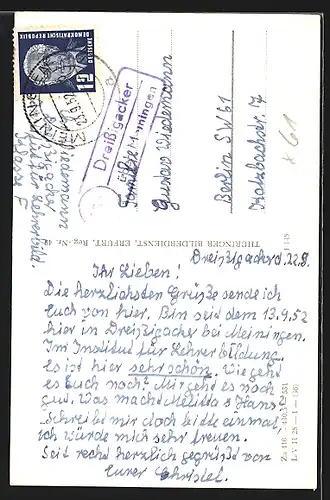 DEUTSCHE
DEMOKRATISCHE REPUBLIK
12
Dreißigacker
über Meiningen
Familie
Gustav Wiedemann
Berlin SW 61
Katzbachstr. 17
x 61
Wiedemann
THÜRINGER BILDERDIENST, ERFURT, Reg.-Nr.
Dreißigacker d. 22.9.
Ihr Lieben!
Die herzlichsten Grüße sende ich
Euch von hier. Bin seit dem 13.9.52
hier in Dreißigacker bei Meiningen.
Im Institut für Lehrerbildung.
Es ist hier sehr schön. Wie geht
es Euch noch? Mir geht es noch
gut. Was macht Melitta & Hans
Schreibt mir doch bitte einmal,
ich würde mich sehr freuen.
Seit recht herzlich gegrüßt von
Eurer Christel.